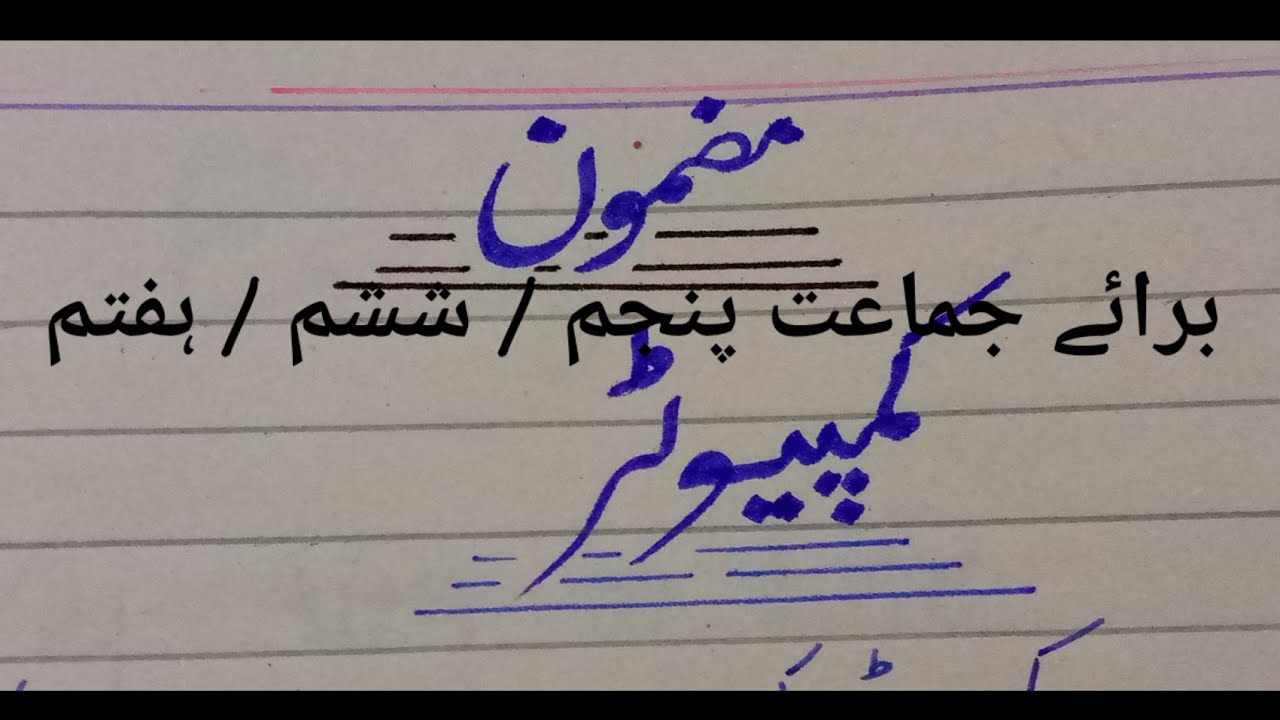 مضمون
برائے جماعت پنجم / ششم / ہفتم
کمپیوٹر